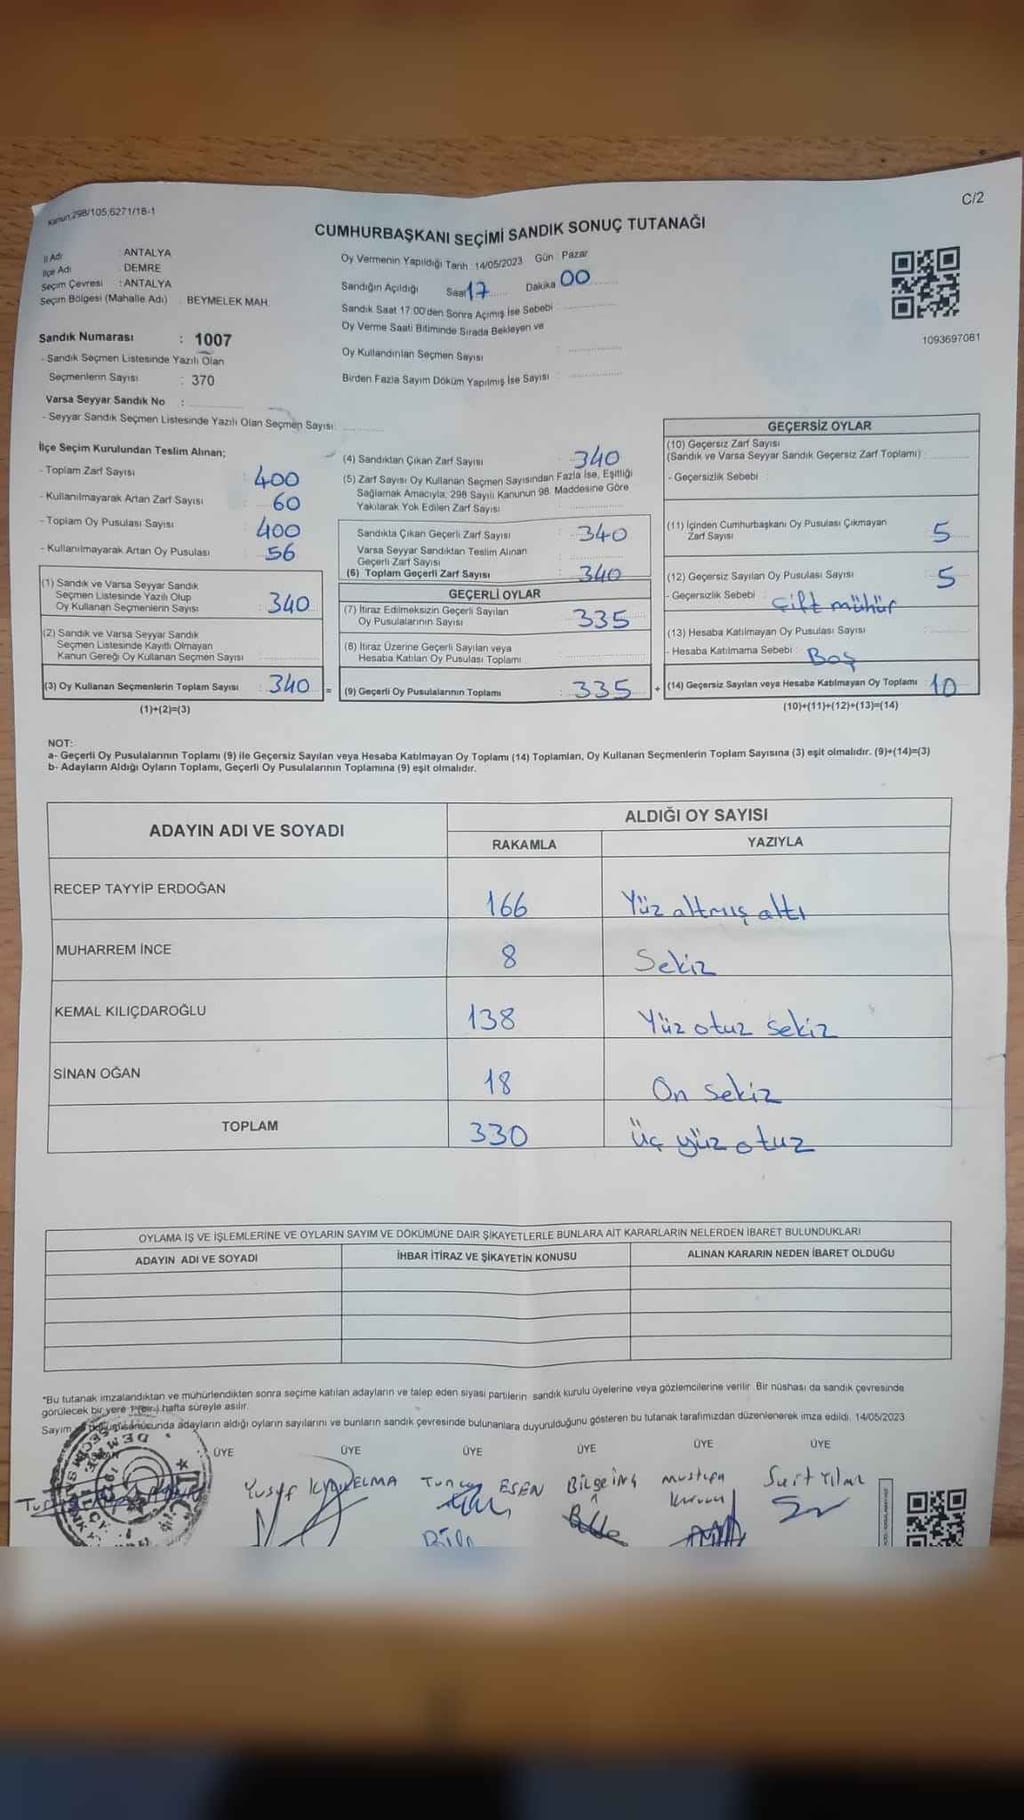 Kanun:298/105,6271/18-1
C/2
CUMHURBAŞKANI SEÇİMİ SANDIK SONUÇ TUTANAĞI
İl Adı : ANTALYA
İlçe Adı : DEMRE
Seçim Çevresi : ANTALYA
Seçim Bölgesi (Mahalle Adı) : BEYMELEK MAH.
Oy Vermenin Yapıldığı Tarih : 14/05/2023 Gün : Pazar
Sandığın Açıldığı Saat 17 Dakika 00
Sandık Saat 17:00'den Sonra Açımış İse Sebebi
Oy Verme Saati Bitiminde Sırada Bekleyen ve
Oy Kullandırılan Seçmen Sayısı
Birden Fazla Sayım Döküm Yapılmış İse Sayısı
1093697081
Sandık Numarası : 1007
- Sandık Seçmen Listesinde Yazılı Olan
Seçmenlerin Sayısı : 370
Varsa Seyyar Sandık No :
- Seyyar Sandık Seçmen Listesinde Yazılı Olan Seçmen Sayısı:
İlçe Seçim Kurulundan Teslim Alınan;
- Toplam Zarf Sayısı : 400
- Kullanılmayarak Artan Zarf Sayısı : 60
- Toplam Oy Pusulası Sayısı : 400
- Kullanılmayarak Artan Oy Pusulası : 56
(1) Sandık ve Varsa Seyyar Sandık
Seçmen Listesinde Yazılı Olup
Oy Kullanan Seçmenlerin Sayısı : 340
(2) Sandık ve Varsa Seyyar Sandık
Seçmen Listesinde Kayıtlı Olmayan
Kanun Gereği Oy Kullanan Seçmen Sayısı
(3) Oy Kullanan Seçmenlerin Toplam Sayısı : 340 =
(1)+(2)=(3)
(4) Sandıktan Çıkan Zarf Sayısı : 340
(5) Zarf Sayısı Oy Kullanan Seçmen Sayısından Fazla İse, Eşitliği
Sağlamak Amacıyla, 298 Sayılı Kanunun 98. Maddesine Göre
Yakılarak Yok Edilen Zarf Sayısı
Sandıkta Çıkan Geçerli Zarf Sayısı : 340
Varsa Seyyar Sandıktan Teslim Alınan
Geçerli Zarf Sayısı
(6) Toplam Geçerli Zarf Sayısı : 340
GEÇERLİ OYLAR
(7) İtiraz Edilmeksizin Geçerli Sayılan
Oy Pusulalarının Sayısı : 335
(8) İtiraz Üzerine Geçerli Sayılan veya
Hesaba Katılan Oy Pusulası Toplamı
(9) Geçerli Oy Pusulalarının Toplamı : 335 +
GEÇERSİZ OYLAR
(10) Geçersiz Zarf Sayısı
(Sandık ve Varsa Seyyar Sandık Geçersiz Zarf Toplamı) :
- Geçersizlik Sebebi :
(11) İçinden Cumhurbaşkanı Oy Pusulası Çıkmayan
Zarf Sayısı : 5
(12) Geçersiz Sayılan Oy Pusulası Sayısı : 5
- Geçersizlik Sebebi : Çift mühür
(13) Hesaba Katılmayan Oy Pusulası Sayısı
- Hesaba Katılmama Sebebi : Boş
(14) Geçersiz Sayılan veya Hesaba Katılmayan Oy Toplamı : 10
(10)+(11)+(12)+(13)=(14)
NOT:
a- Geçerli Oy Pusulalarının Toplamı (9) ile Geçersiz Sayılan veya Hesaba Katılmayan Oy Toplamı (14) Toplamları, Oy Kullanan Seçmenlerin Toplam Sayısına (3) eşit olmalıdır. (9)+(14)=(3)
b- Adayların Aldığı Oyların Toplamı, Geçerli Oy Pusulalarının Toplamına (9) eşit olmalıdır.
ADAYIN ADI VE SOYADI ALDIĞI OY SAYISI
RAKAMLA YAZIYLA
RECEP TAYYİP ERDOĞAN 166 Yüz altmış altı
MUHARREM İNCE 8 Sekiz
KEMAL KILIÇDAROĞLU 138 Yüz otuz sekiz
SİNAN OĞAN 18 On sekiz
TOPLAM 330 Üç yüz otuz
OYLAMA İŞ VE İŞLEMLERİNE VE OYLARIN SAYIM VE DÖKÜMÜNE DAİR ŞİKAYETLERLE BUNLARA AİT KARARLARIN NELERDEN İBARET BULUNDUKLARI
ADAYIN ADI VE SOYADI İHBAR İTİRAZ VE ŞİKAYETİN KONUSU ALINAN KARARIN NEDEN İBARET OLDUĞU
*Bu tutanak imzalandıktan ve mühürlendikten sonra seçime katılan adayların ve talep eden siyasi partilerin sandık kurulu üyelerine veya gözlemcilerine verilir. Bir nüshası da sandık çevresinde
görülecek bir yere 1(Bir) hafta süreyle asılır.
Sayım sonucunda adayların aldığı oyların sayılarını ve bunların sandık çevresinde bulunanlara duyurulduğunu gösteren bu tutanak tarafımızdan düzenlenerek imza edildi. 14/05/2023
ÜYE ÜYE ÜYE ÜYE ÜYE ÜYE
Yusuf Tuncay ESEN Mustafa Suat Yılmaz